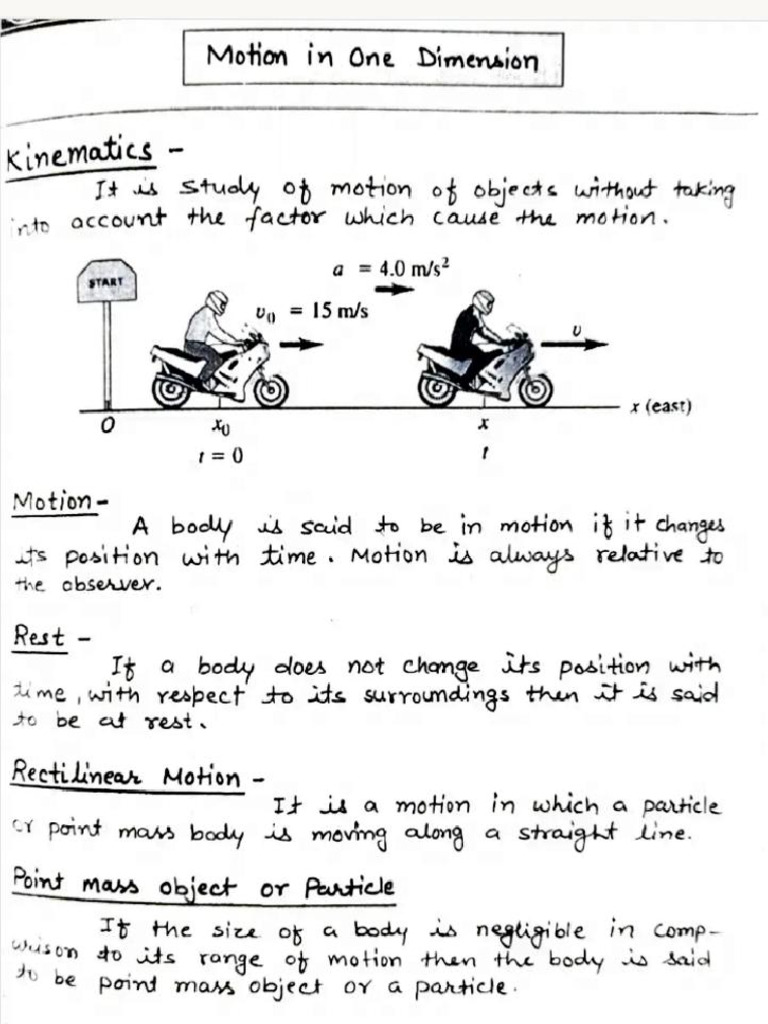 Motion in One Dimension
Kinematics -
It is study of motion of objects without taking
into account the factor which cause the motion.
a = 4.0 m/s²
START
v₀ = 15 m/s
v
x (east)
O
x₀
x
t = 0
t
Motion -
A body is said to be in motion if it changes
its position with time. Motion is always relative to
the observer.
Rest -
If a body does not change its position with
time, with respect to its surroundings then it is said
to be at rest.
Rectilinear Motion -
It is a motion in which a particle
or point mass body is moving along a straight line.
Point mass object or Particle
If the size of a body is negligible in comp-
arison to its range of motion then the body is said
to be point mass object or a particle.